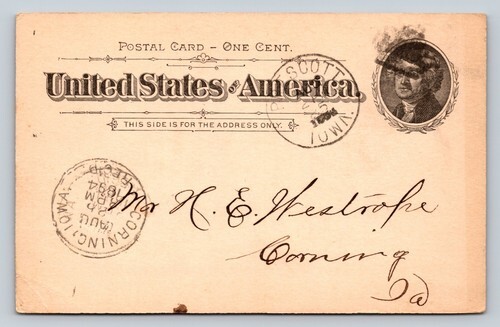 POSTAL CARD - ONE CENT.
United States of America.
THIS SIDE IS FOR THE ADDRESS ONLY.
PRESCOTT
IOWA
CORNING, IOWA
AUG
4 PM
1894
REC'D
Mr H. E. Westrope
Corning
Ia